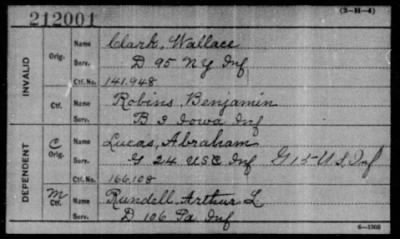 (3-H-4)
212001
INVALID
Orig. Name Clark, Wallace
Serv. D 95 N Y Inf
Ctf. No. 141.948
Ctf. Name Robins Benjamin
Serv. B 2 Iowa Inf
DEPENDENT
C Orig. Name Lucas, Abraham
Serv. G 24 U S C Inf G 15-U.S. Inf
Ctf. No. 166,108
M Ctf. Name Rundell Arthur L
Serv. D 106 Pa Inf